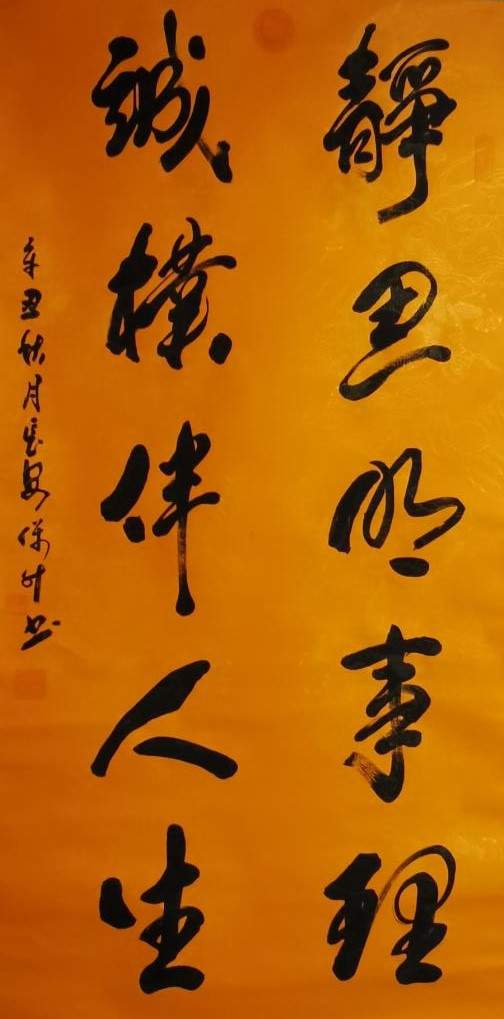 靜思明事理
誠樸伴人生
辛丑秋月長安保叶书